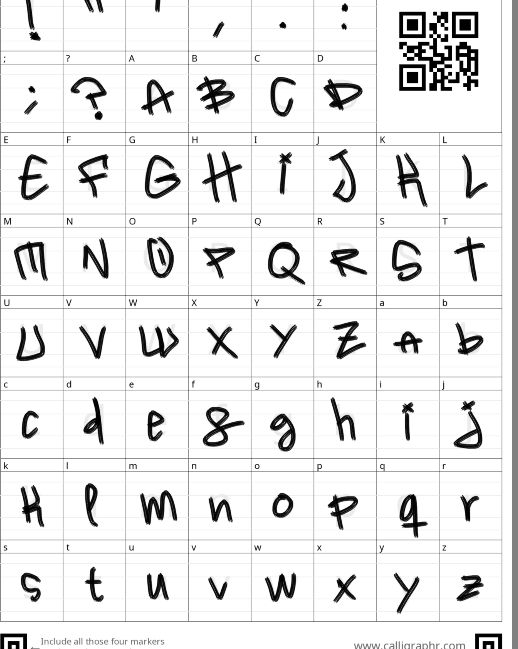 ! " ' , . :
; ? A B C D
; ? A B C D
E F G H I J K L
E F G H i J K L
M N O P Q R S T
M N O P Q R S T
U V W X Y Z a b
U V W X Y Z A b
c d e f g h i j
c d e f g h i j
k l m n o p q r
k l m n o p q r
s t u v w x y z
s t u v w x y z
Include all those four markers
www.calligraphr.com